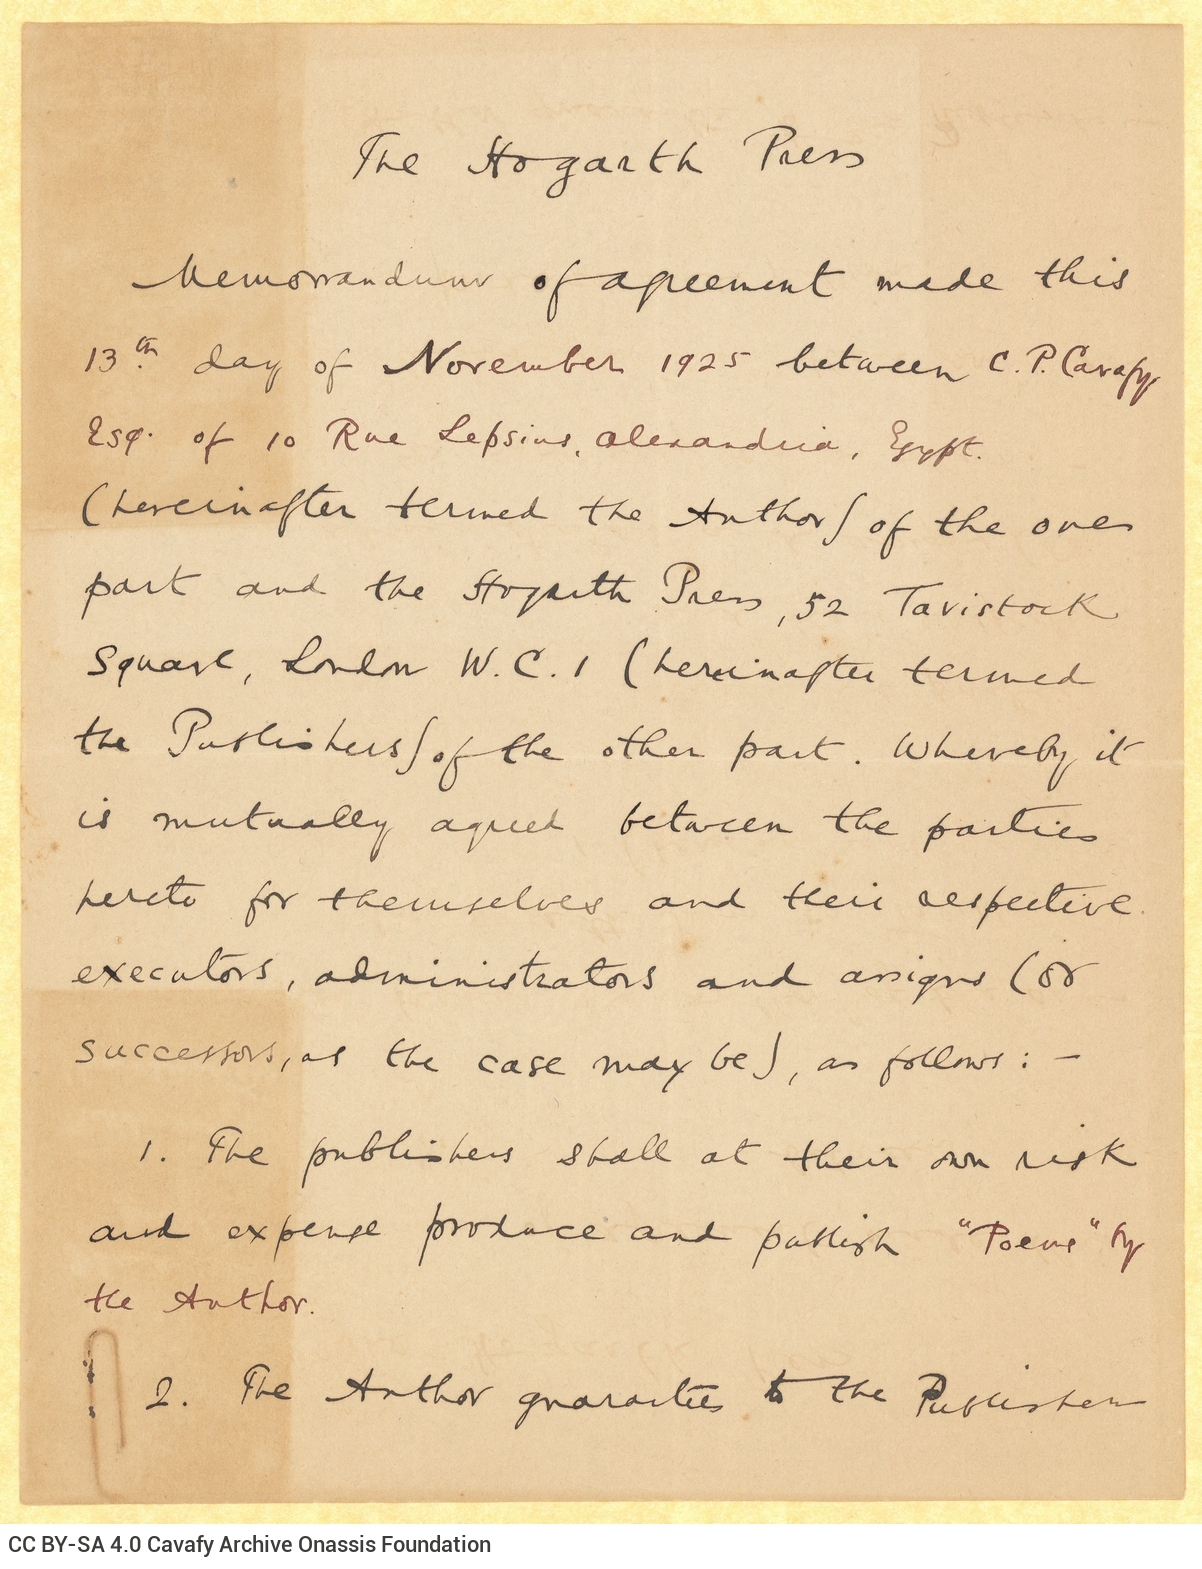 The Hogarth Press
Memorrandum of agreement made this
13th day of November 1925 between C. P. Cavafy
Esq. of 10 Rue Lepsius, Alexandria, Egypt.
(hereinafter termed the Author) of the one
part and the Hogarth Press, 52 Tavistock
Square, London W.C.1 (hereinafter termed
the Publishers) of the other part. Whereby it
is mutually agreed between the parties
hereto for themselves and their respective
executors, administrators and assigns (or
successors, as the case may be), as follows: -
1. The publishers shall at their own risk
and expense produce and publish "Poems" by
the Author.
2. The Author guarantees to the Publishers
CC BY-SA 4.0 Cavafy Archive Onassis Foundation